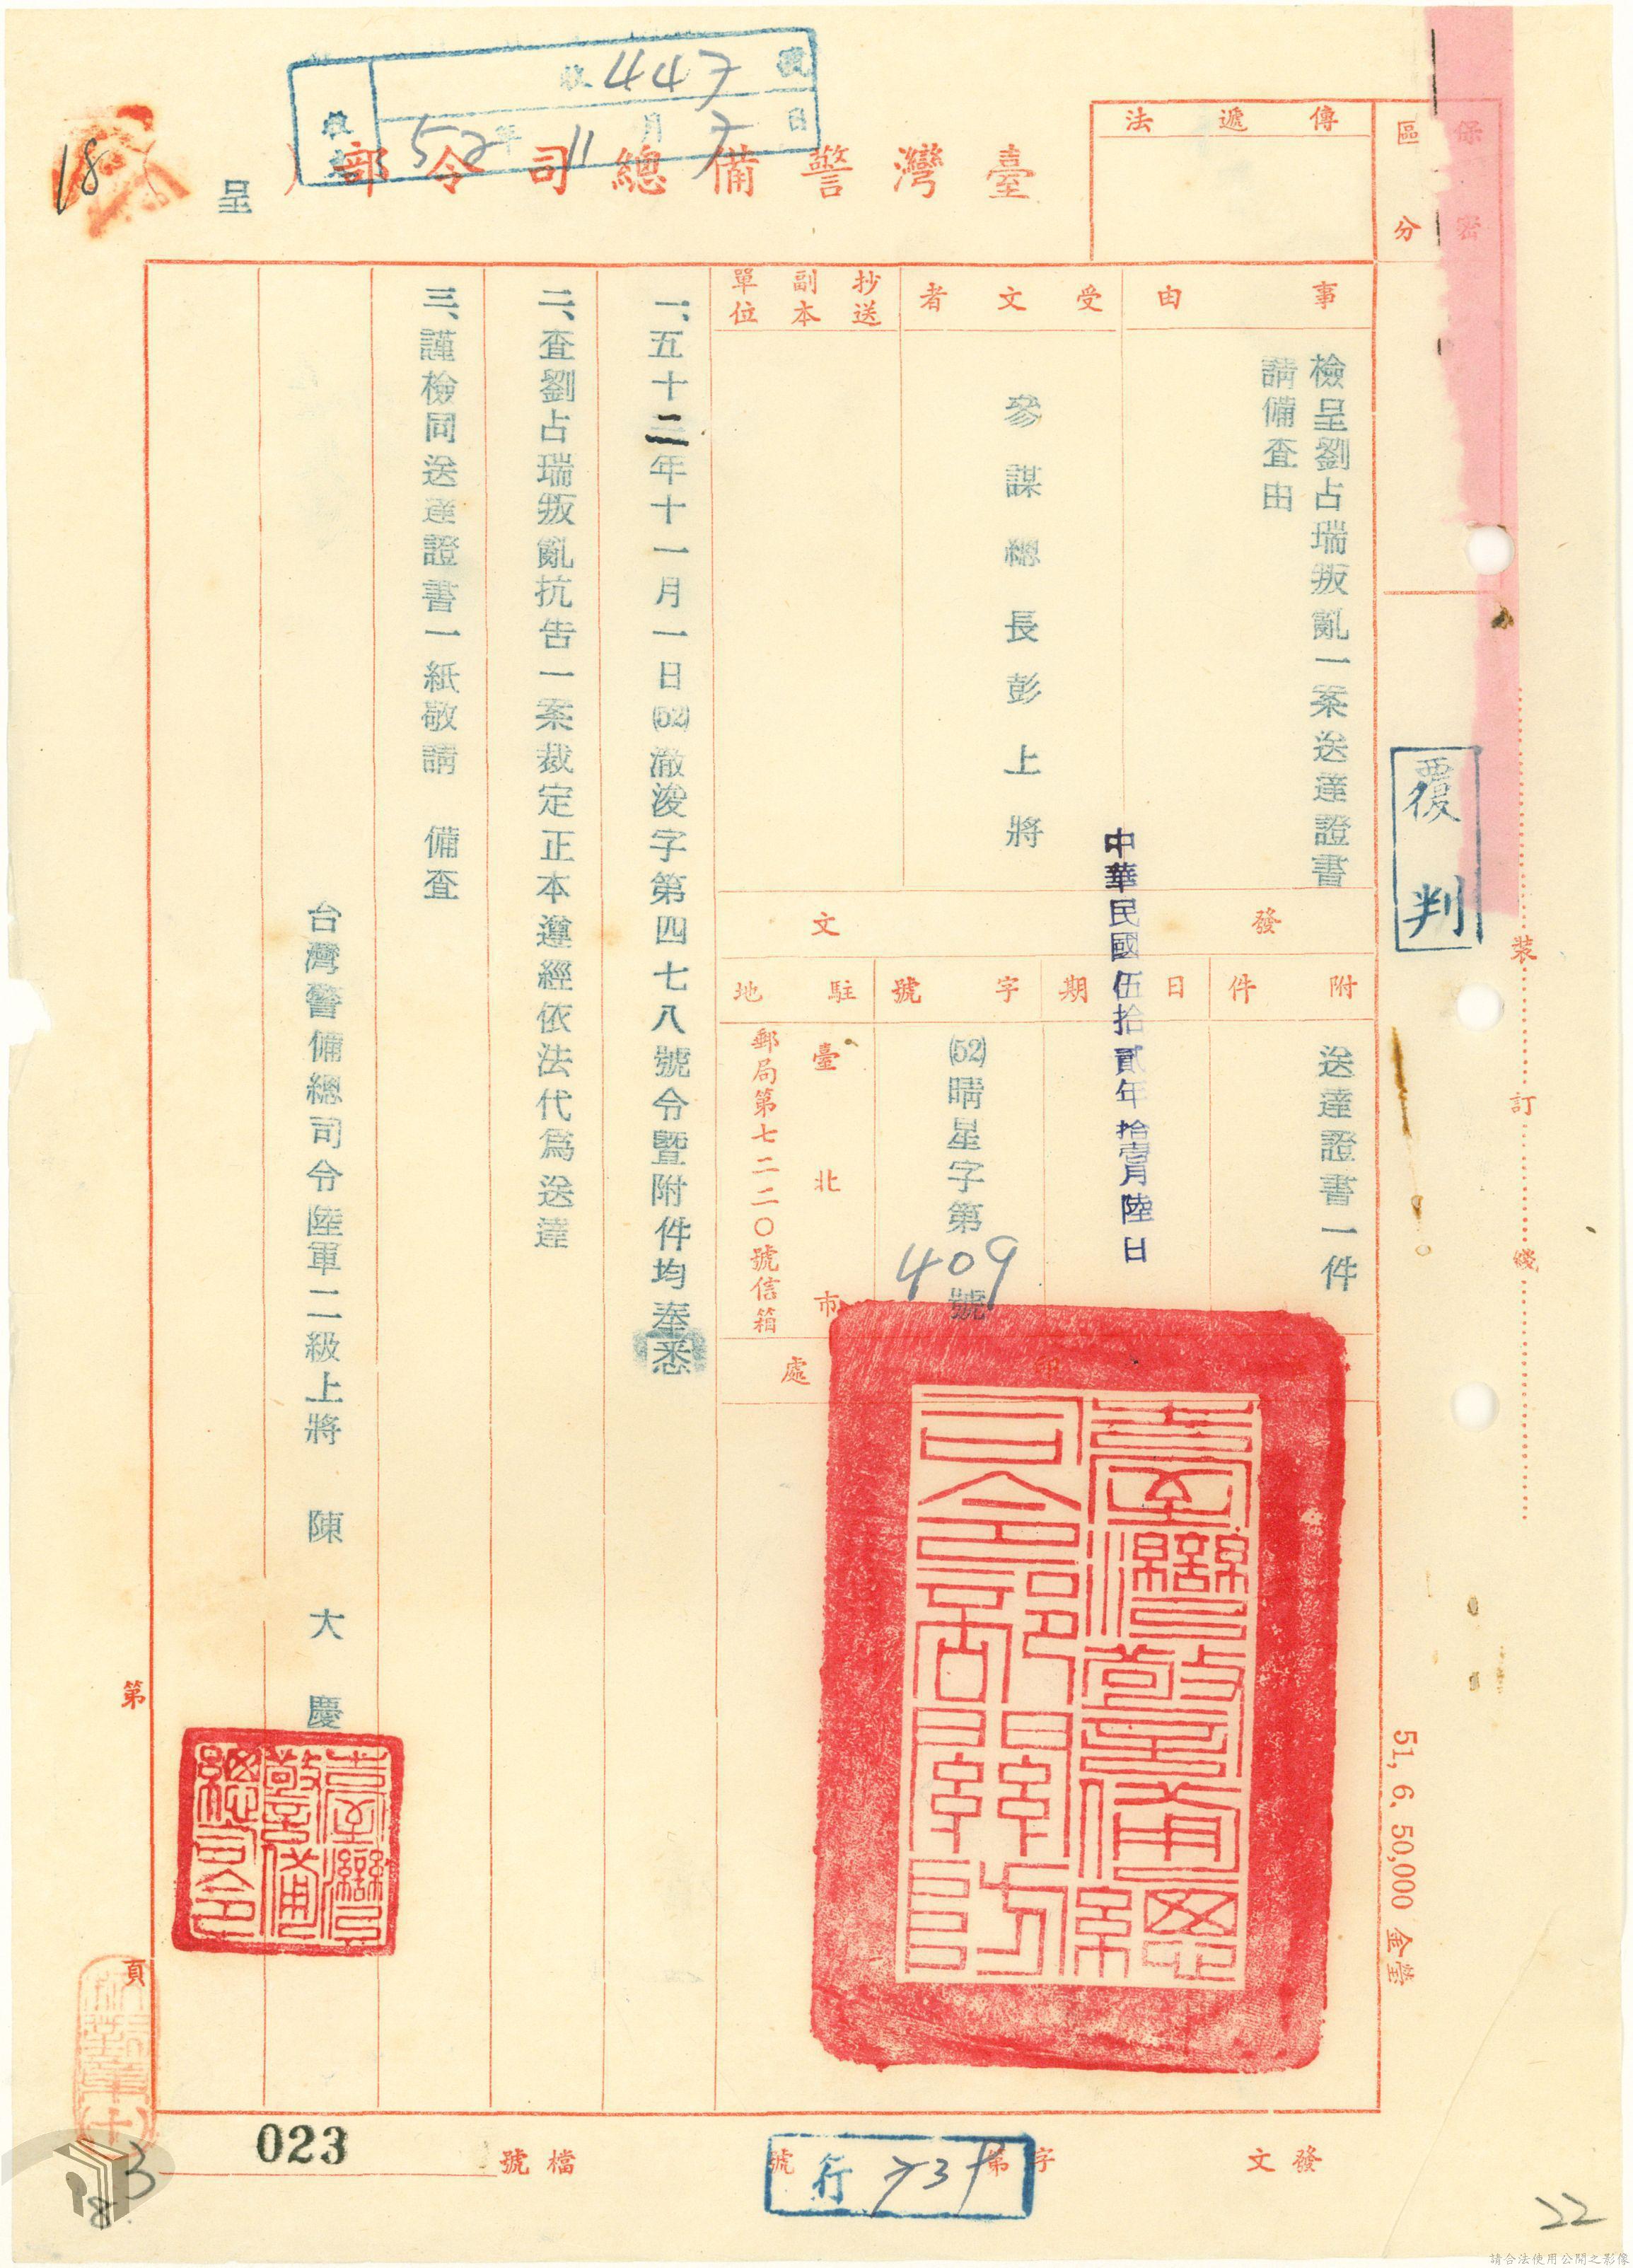 收447號
52年11月7日
臺灣警備總司令部
呈
18
保密
區分
傳遞法
事由
檢呈劉占瑞叛亂一案送達證書
請備查由
受文者
參謀總長彭上將
抄送
副本
單位
發文
附件
送達證書一件
日期
中華民國伍拾貳年拾壹月陸日
字號
(52)晴星字第409號
駐地
臺北市
郵局第七二二〇號信箱
印處
臺灣警備總司令部關防
一、五十二年十一月一日(52)澈浚字第四七八號令暨附件均奉悉
二、查劉占瑞叛亂抗告一案裁定正本遵經依法代為送達
三、謹檢同送達證書一紙敬請 備查
台灣警備總司令陸軍二級上將 陳大慶
臺灣警備總司令
覆判
裝訂線
51, 6, 50,000 金瑩
第
頁
023
檔號
發文
字第
號
行
22
3
8
請合法使用公開之影像